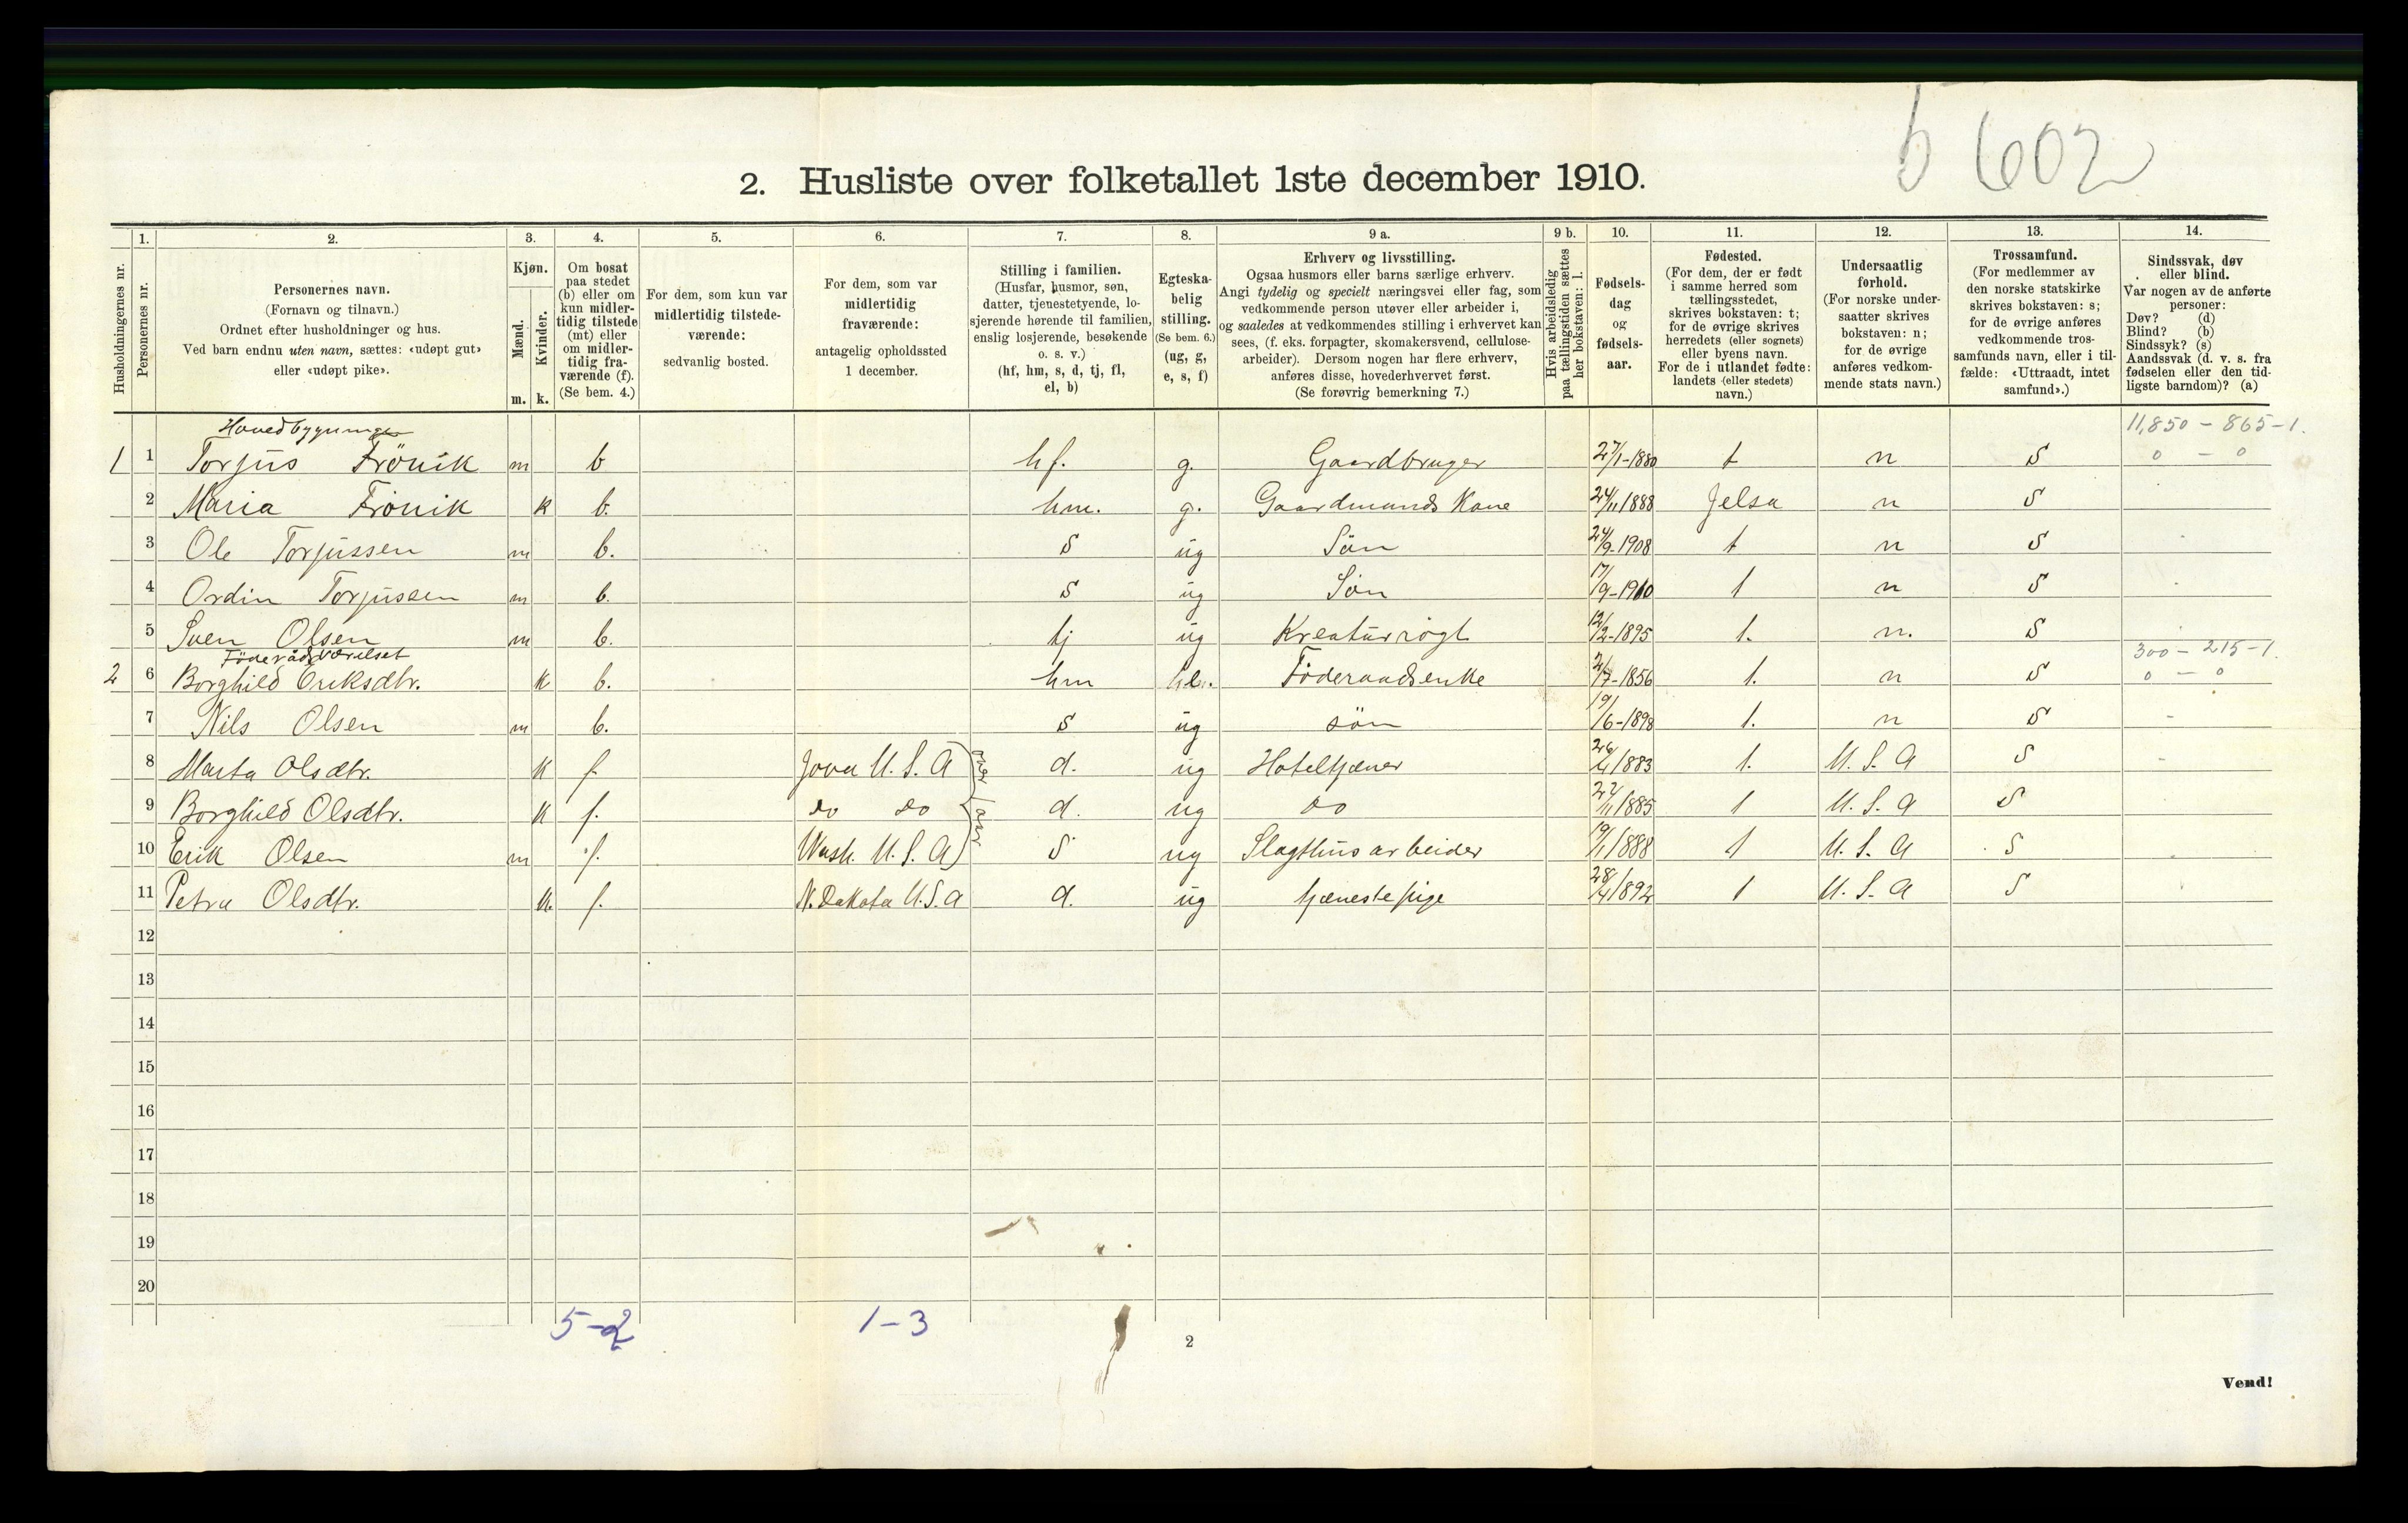 6 602
2. Husliste over folketallet 1ste december 1910.
Husholdningernes nr.
1. Personernes nr.
2.
Personernes navn.
(Fornavn og tilnavn.)
Ordnet efter husholdninger og hus.
Ved barn endnu uten navn, sættes: «udøpt gut»
eller «udøpt pike».
3.
Kjøn.
Mænd. Kvinder.
m. k.
4.
Om bosat
paa stedet
(b) eller om
kun midler-
tidig tilstede
(mt) eller
om midler-
tidig fra-
værende (f).
(Se bem. 4.)
5.
For dem, som kun var
midlertidig tilstede-
værende:
sedvanlig bosted.
6.
For dem, som var
midlertidig
fraværende:
antagelig opholdssted
1 december.
7.
Stilling i familien.
(Husfar, husmor, søn,
datter, tjenestetyende, lo-
sjerende hørende til familien,
enslig losjerende, besøkende
o. s. v.)
(hf, hm, s, d, tj, fl,
el, b)
8.
Egteska-
belig
stilling.
(Se bem. 6.)
(ug, g,
e, s, f)
9 a.
Erhverv og livsstilling.
Ogsaa husmors eller barns særlige erhverv.
Angi tydelig og specielt næringsvei eller fag, som
vedkommende person utøver eller arbeider i,
og saaledes at vedkommendes stilling i erhvervet kan
sees, (f. eks. forpagter, skomakersvend, cellulose-
arbeider). Dersom nogen har flere erhverv,
anføres disse, hovederhvervet først.
(Se forøvrig bemerkning 7.)
9 b.
Hvis arbeidsledig
paa tællingstiden sættes
her bokstaven: l.
10.
Fødsels-
dag
og
fødsels-
aar.
11.
Fødested.
(For dem, der er født
i samme herred som
tællingsstedet,
skrives bokstaven: t;
for de øvrige skrives
herredets (eller sognets)
eller byens navn.
For de i utlandet fødte:
landets (eller stedets)
navn.)
12.
Undersaatlig
forhold.
(For norske under-
saatter skrives
bokstaven: n;
for de øvrige
anføres vedkom-
mende stats navn.)
13.
Trossamfund.
(For medlemmer av
den norske statskirke
skrives bokstaven: s;
for de øvrige anføres
vedkommende tros-
samfunds navn, eller i til-
fælde: «Uttraadt, intet
samfund».)
14.
Sindssvak, døv
eller blind.
Var nogen av de anførte
personer:
Døv? (d)
Blind? (b)
Sindssyk? (s)
Aandssvak (d. v. s. fra
fødselen eller den tid-
ligste barndom)? (a)
Hovedbygningen 11,850 - 865-1.
1 1 Torjus Frönik m b hf. g. Gaardbruger 27/1-1880 t n S 0 - 0
2 Maria Frönik k b. hm. g. Gaardmands Kone 24/11 1888 Jelsa n S
3 Ole Torjussen m b. S ug Sön 24/9-1908 t n S
4 Ordin Torjussen m b. S ug Sön 17/9-1910 t n S
5 Sven Olsen m b. tj ug Kreaturrögt 12/2-1895 t. n. S
Föderådsværelset 300 - 215-1.
2 6 Borghild Eriksdtr. k b. hm Föderaadsenke 2/7-1856 t. n S 0 - 0
7 Nils Olsen m b. S ug sön 19/6-1898 t. n S
8 Marta Olsdtr. k f. Jova U. S. A d. ug Hoteltjæner 26/4 1883 t. U. S. A S
over 1 aar
9 Borghild Olsdtr. k f. do do d. ug do 1885 t U. S. A S
10 Erik Olsen m f. Wash. U. S. A S ug Slagthusarbeider 19/1 1888 t U. S. A S
11 Petra Olsdtr. k. f. N. Dakota U.S.A d. ug tjenestepige 28/4 1892 t U. S. A S
12
13
14
15
16
17
18
19
20
5-2 1-3
2
Vend!